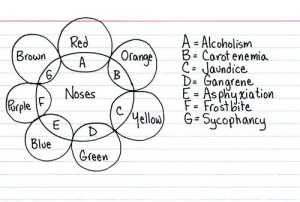 Red
Brown
Orange
A
G
B
Noses
Purple
F
C
Yellow
E
D
Blue
Green
A = Alcoholism
B = Carotenemia
C = Jaundice
D = Gangrene
E = Asphyxiation
F = Frostbite
G = Sycophancy